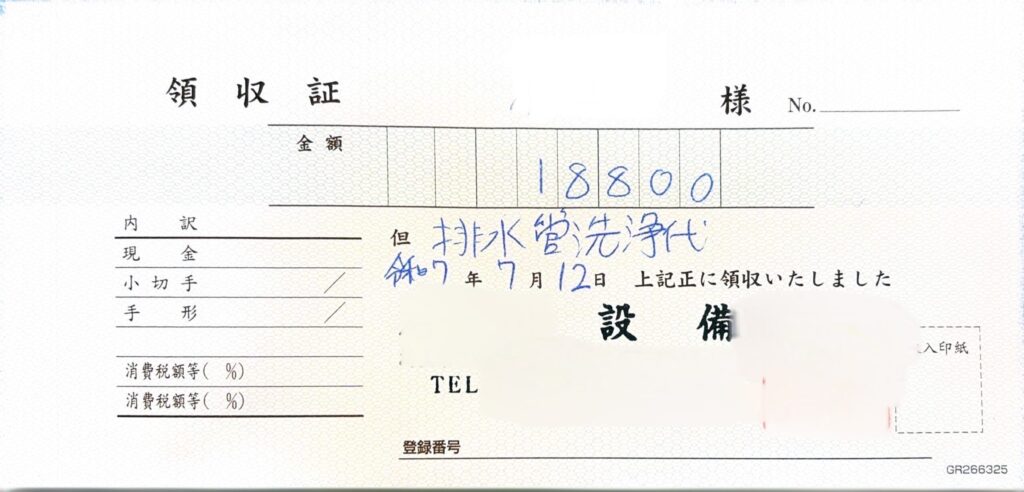 領収証 様 No.
金額 18800
内訳
現金
小切手 /
手形 /
消費税額等( %)
消費税額等( %)
但 排水管洗浄代
令和7年7月12日 上記正に領収いたしました
設備
入印紙
TEL
登録番号
GR266325